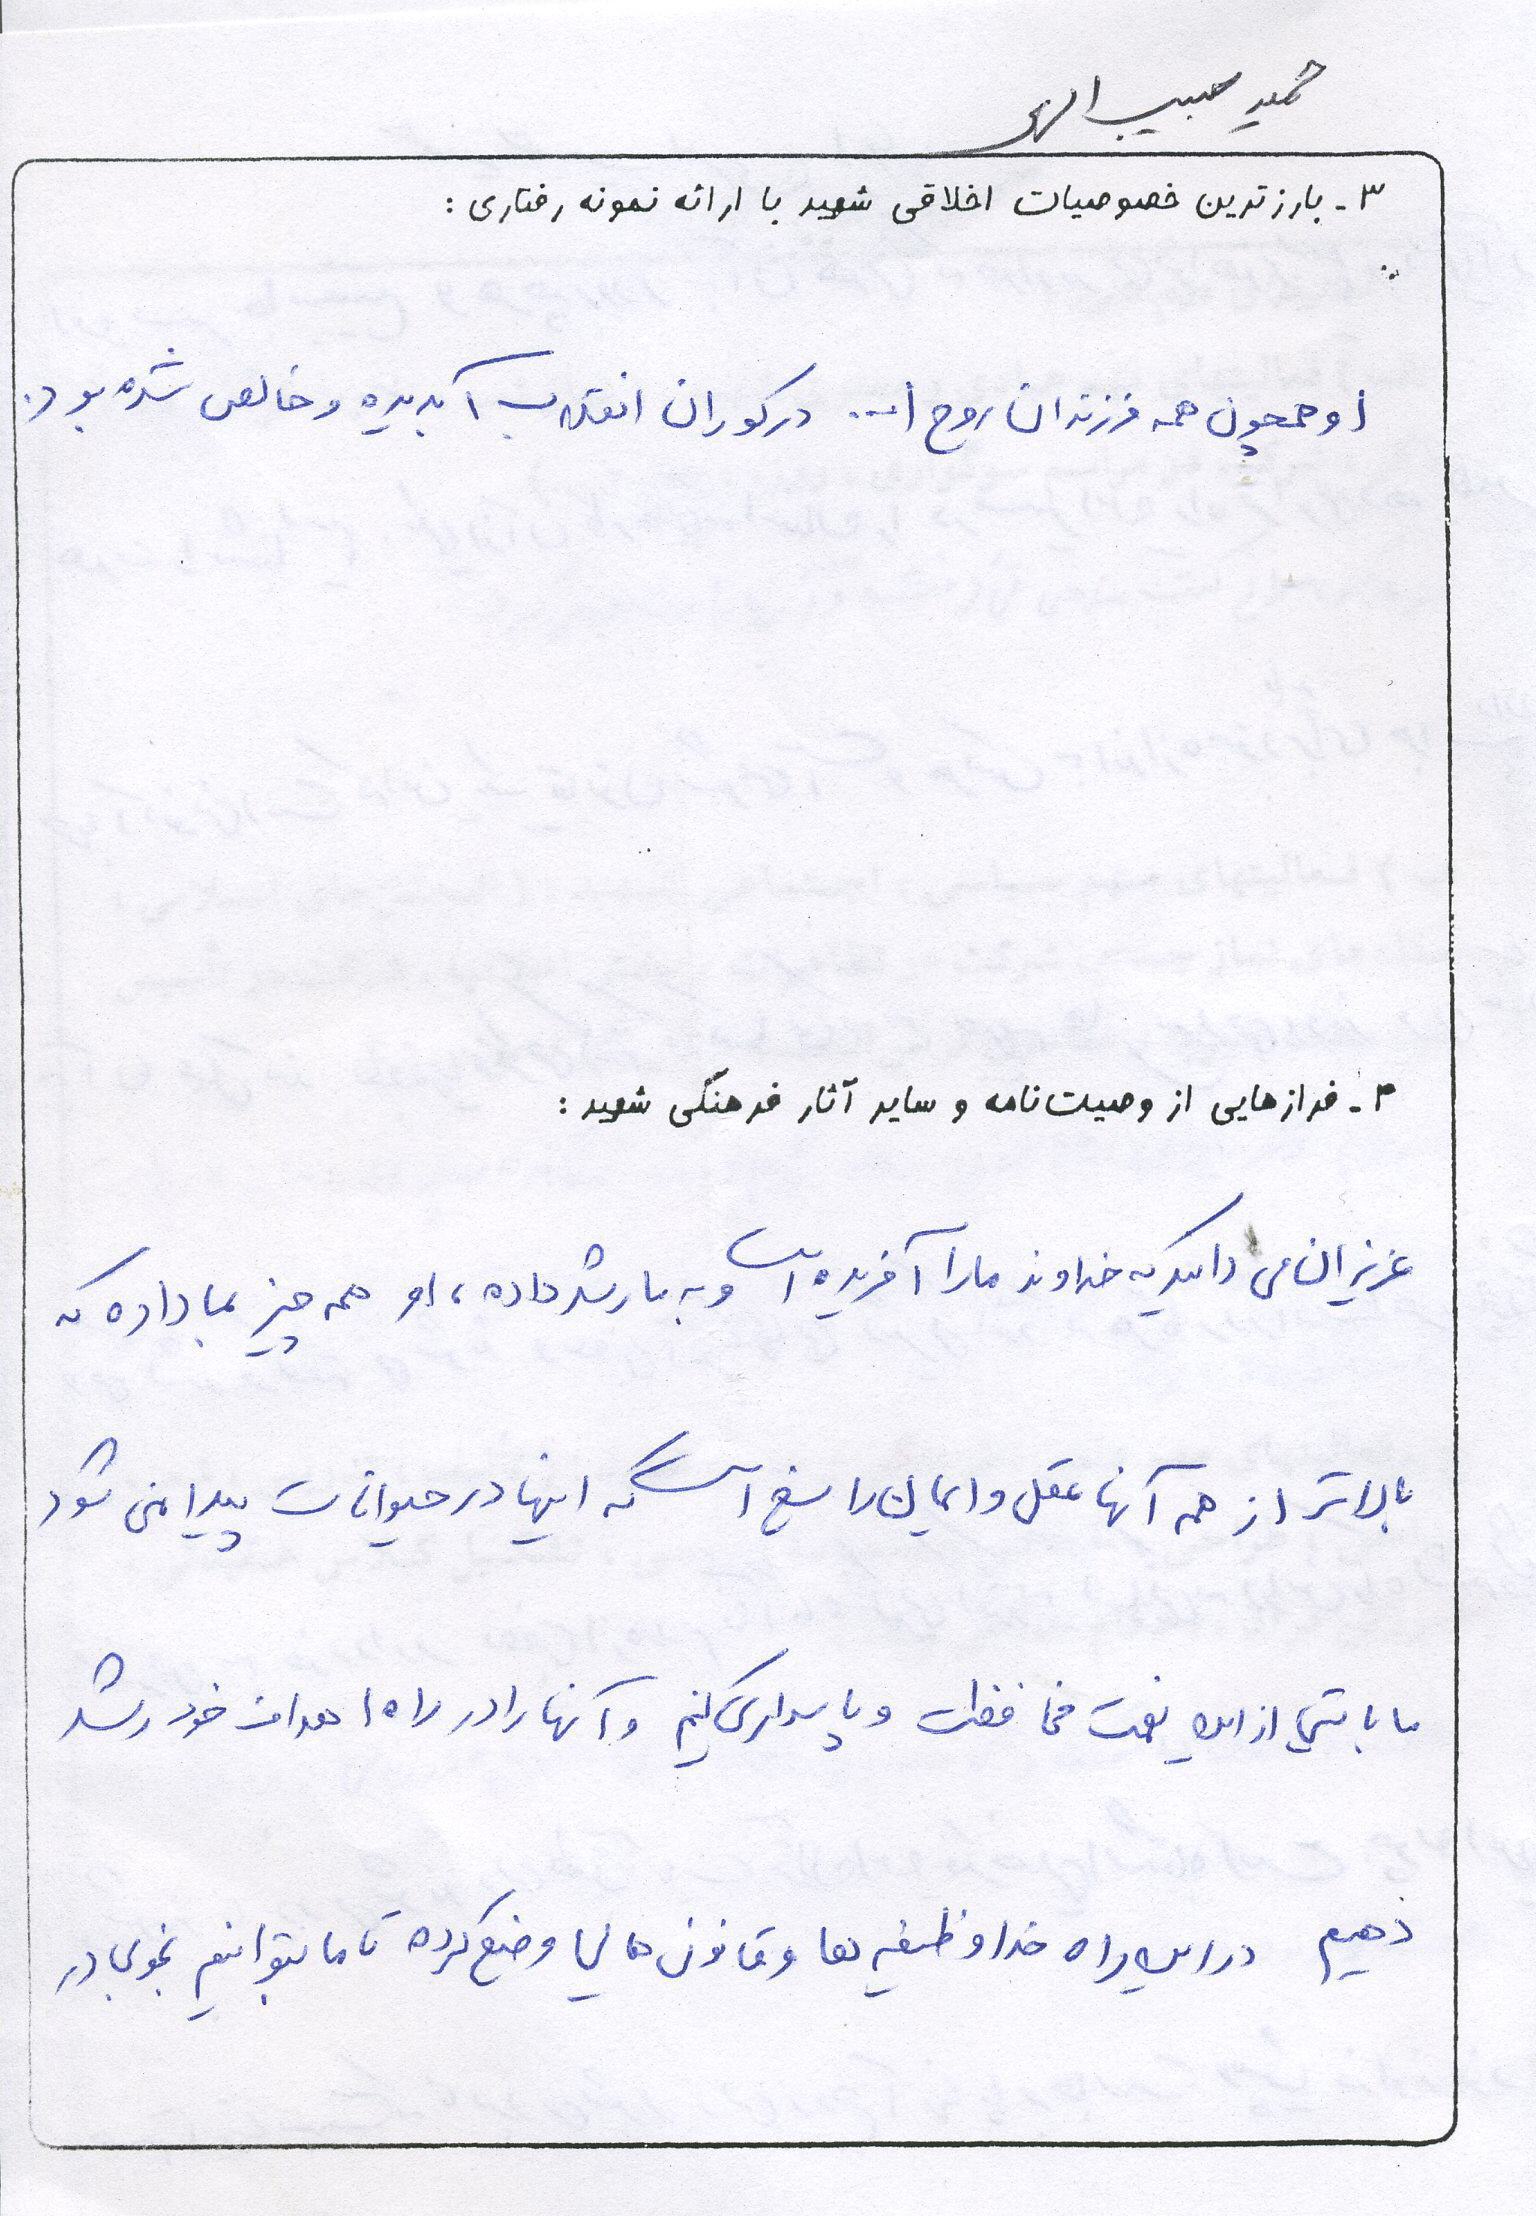 حمید حبیب الهی
۳- بارزترین خصوصیات اخلاقی شهید با ارائه نمونه رفتاری :
او همچون همه فرزندان روح ا... در کوران انقلاب آبدیده و خالص شده بود.
۴- فرازهایی از وصیت‌نامه و سایر آثار فرهنگی شهید :
عزیزان می دانید که خداوند ما را آفریده است و به ما رشد داده ، او همه چیز بما داده که
بالاتر از همه آنها عقل و ایمان راسخ است که اینها در حیوانات پیدا نمی شود
ما بایستی از این نعمت محافظت و پاسداری کنیم و آنها را در راه اهداف خود رشد
دهیم در این راه خدا وظیفه ها و قانون هایی وضع کرده تا ما بتوانیم بخوبی در